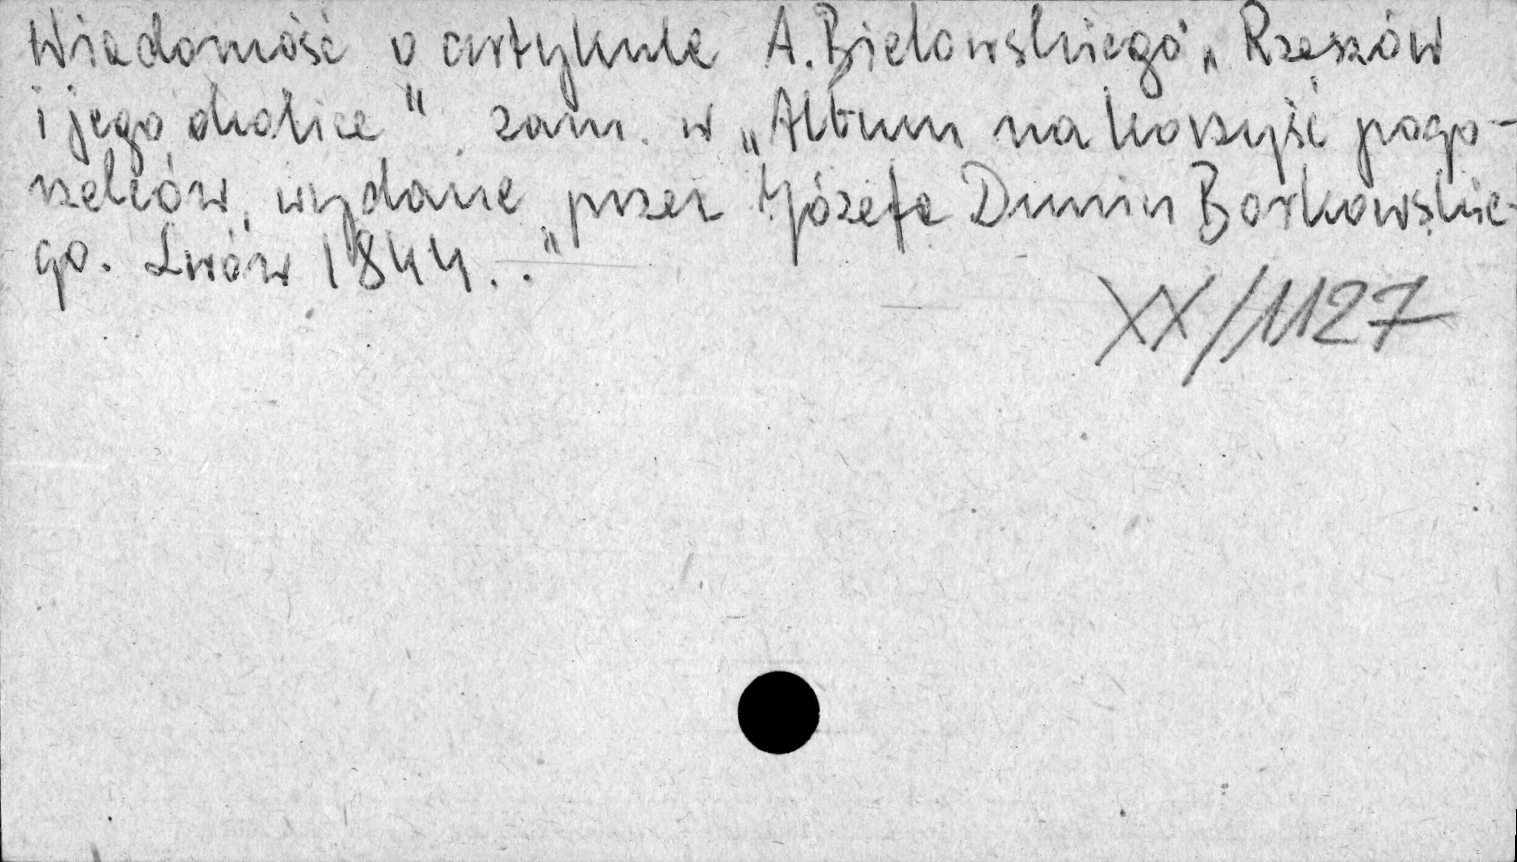 Wiadomość o artykule A. Bielowskiego „Rzeszów
i jego okolice" zam. w „Album na korzyść pogo-
rzelców, wydane przez Józefa Dunin Borkowskie-
go. Lwów 1844..."
XX/1127